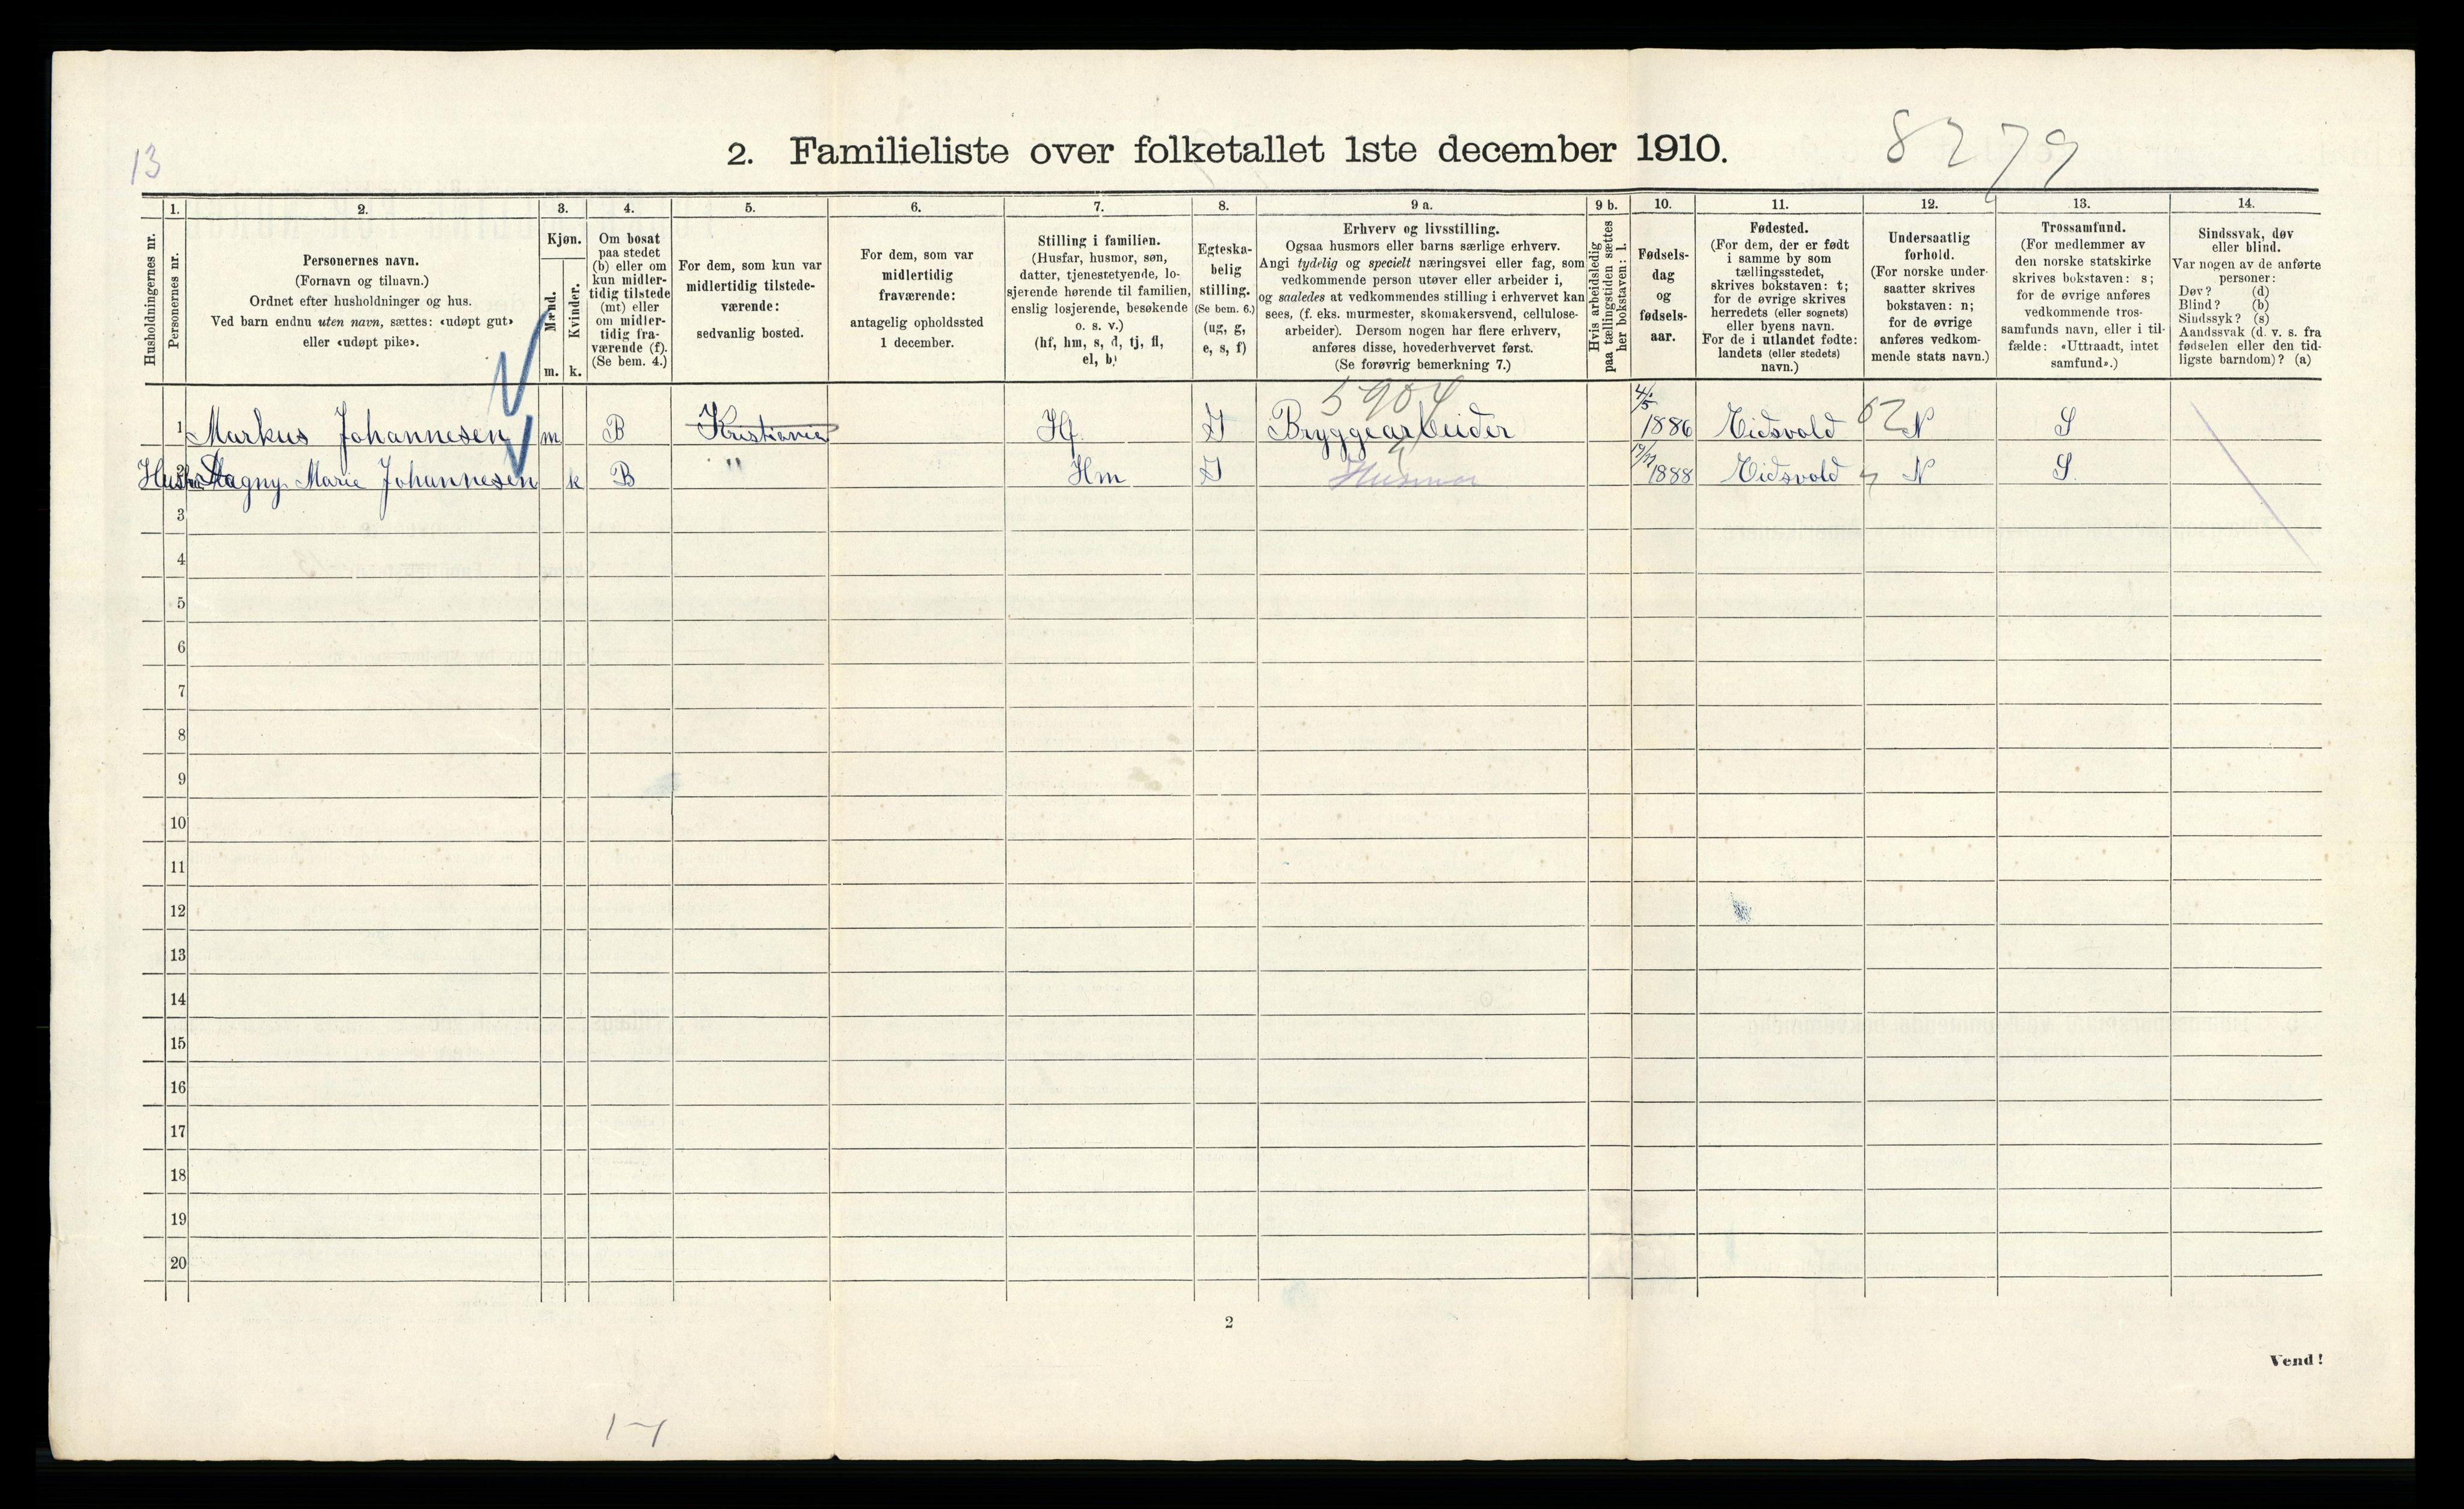 13
2. Familieliste over folketallet 1ste december 1910.
8279
Husholdningernes nr.
1.
Personernes nr.
2.
Personernes navn.
(Fornavn og tilnavn.)
Ordnet efter husholdninger og hus.
Ved barn endnu uten navn, sættes: «udøpt gut»
eller «udøpt pike».
3.
Kjøn.
Mænd.
m.
Kvinder.
k.
4.
Om bosat
paa stedet
(b) eller om
kun midler-
tidig tilstede
(mt) eller
om midler-
tidig fra-
værende (f).
(Se bem. 4.)
5.
For dem, som kun var
midlertidig tilstede-
værende:
sedvanlig bosted.
6.
For dem, som var
midlertidig
fraværende:
antagelig opholdssted
1 december.
7.
Stilling i familien.
(Husfar, husmor, søn,
datter, tjenestetyende, lo-
sjerende hørende til familien,
enslig losjerende, besøkende
o. s. v.)
(hf, hm, s, d, tj, fl,
el, b)
8.
Egteska-
belig
stilling.
(Se bem. 6.)
(ug, g,
e, s, f)
9 a.
Erhverv og livsstilling.
Ogsaa husmors eller barns særlige erhverv.
Angi tydelig og specielt næringsvei eller fag, som
vedkommende person utøver eller arbeider i,
og saaledes at vedkommendes stilling i erhvervet kan
sees, (f. eks. murmester, skomakersvend, cellulose-
arbeider). Dersom nogen har flere erhverv,
anføres disse, hovederhvervet først.
(Se forøvrig bemerkning 7.)
9 b.
Hvis arbeidsledig
paa tællingstiden sættes
her bokstaven: l.
10.
Fødsels-
dag
og
fødsels-
aar.
11.
Fødested.
(For dem, der er født
i samme by som
tællingsstedet,
skrives bokstaven: t;
for de øvrige skrives
herredets (eller sognets)
eller byens navn.
For de i utlandet fødte:
landets (eller stedets)
navn.)
12.
Undersaatlig
forhold.
(For norske under-
saatter skrives
bokstaven: n;
for de øvrige
anføres vedkom-
mende stats navn.)
13.
Trossamfund.
(For medlemmer av
den norske statskirke
skrives bokstaven: s;
for de øvrige anføres
vedkommende tros-
samfunds navn, eller i til-
fælde: «Uttraadt, intet
samfund».)
14.
Sindssvak, døv
eller blind.
Var nogen av de anførte
personer:
Døv? (d)
Blind? (b)
Sindssyk? (s)
Aandssvak (d. v. s. fra
fødselen eller den tid-
ligste barndom)? (a)
5904
1 Markus Johannesen m B Kristiania Hf. G Bryggearbeider 4/5 1886 Eidsvold 62 N S
2 Magny Marie Johannesen k B " Hm G Husmor 1888 Eidsvold N S.
3
4
5
6
7
8
9
10
11
12
13
14
15
16
17
18
19
20
2
Vend!